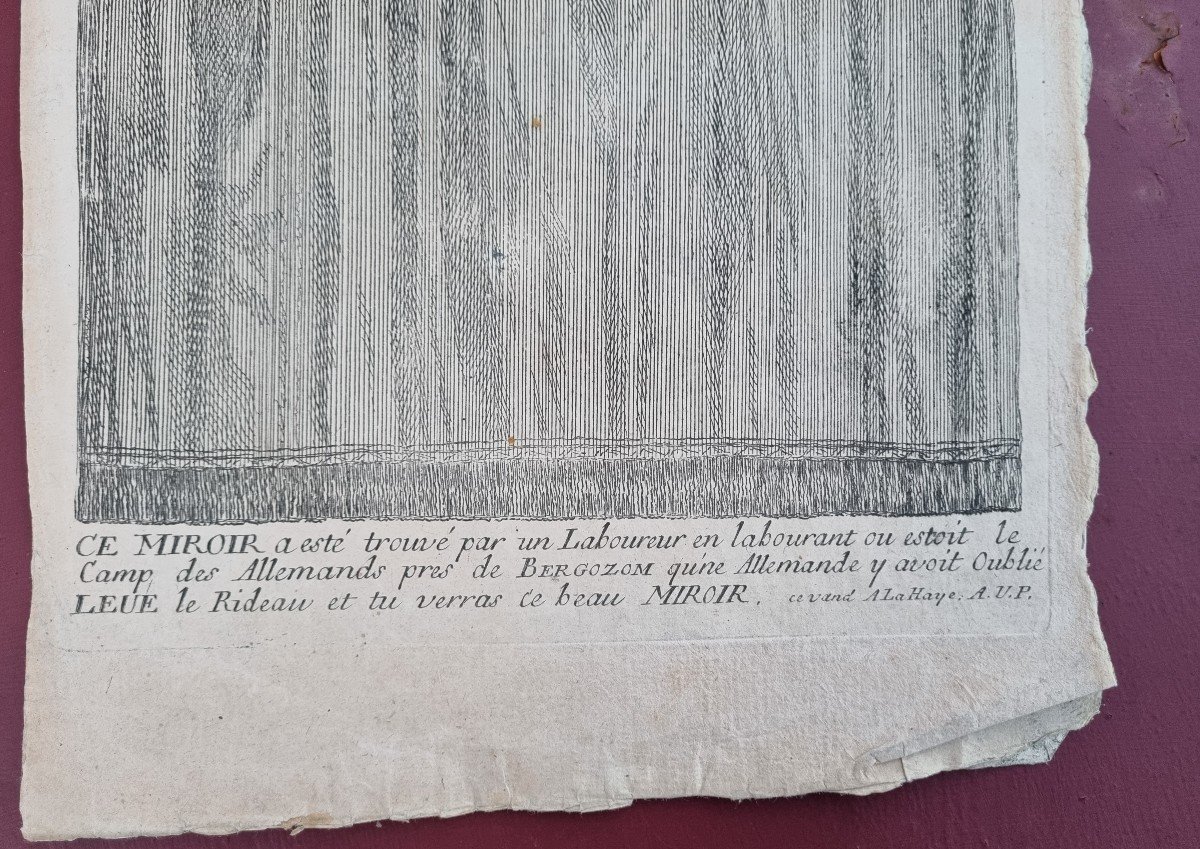 CE MIROIR a esté trouvé par un Laboureur en labourant ou estoit le
Camp des Allemands pres de BERGOZOM qu'ine Allemande y avoit Oublié
LEUE le Rideau et tu verras ce beau MIROIR. ce vand A La Haye. A.V.P.